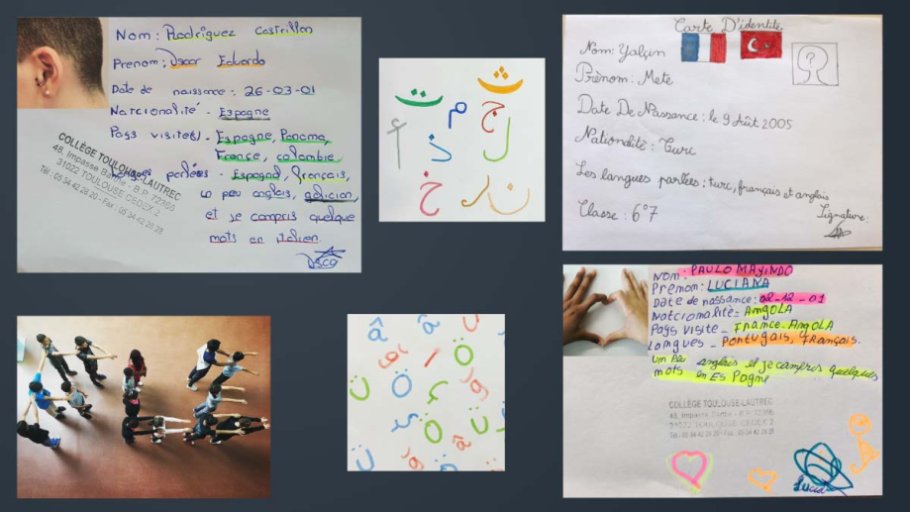 Nom : Rodriguez Castrillon
Prenom : Oscar Eduardo
Date de naissance : 26-03-01
Natcionalité - Espagne
Pays visite(s) - Espagne, Panama,
France, colombie
parlées - Espagnol, français,
un peu anglais, galician,
et je compris quelque
mots en italien.
COLLÈGE TOULOUSE-LAUTREC
48, Impasse Barthe - B.P. 72260
31022 TOULOUSE CEDEX 2
Tél : 05 34 42 28 20 - Fax : 05 34 42 28 28
ت ث
م ج
أ ذ ل
خ ر ن
Carte D'identité
Nom: Yalçin
Prénom: Mete
Date De Naissance : le 9 Août 2005
Nationalité : Turc
Les langues parlées : turc, français et anglais
Classe : 6°7
Signature:
â ê
ö
ü ö
NOM : PAULO MAYINDO
Prenom : LUCIANA
Date de naissance : 02-12-01
Natcionalité - AngOLA
Pays visite - France - AngOLA
Langues - Portugais, Français.
un peu anglais et je compres quelques
mots en ESPagne
COLLÈGE TOULOUSE-LAUTREC
48, Impasse Barthe - B.P. 72260
31022 TOULOUSE CEDEX 2
Tél : 05 34 42 28 20 - Fax : 05 34 42 28 28